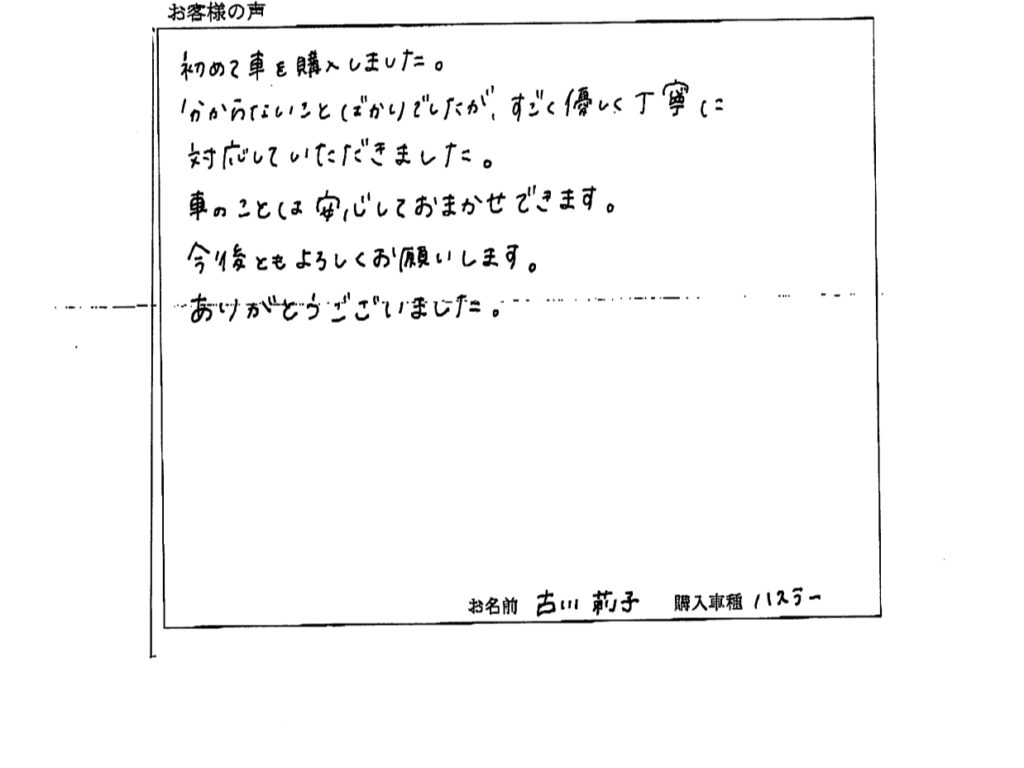 お客様の声
初めて車を購入しました。
分からないことばかりでしたが、すごく優しく丁寧に
対応していただきました。
車のことは安心しておまかせできます。
今後ともよろしくお願いします。
ありがとうございました。
お名前 古川 莉子 購入車種 ハスラー